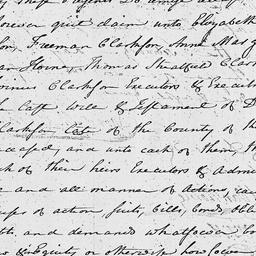 forever quit claim unto Elizabeth
son, Freeman Clarkson, Anne Mar
an Horne, Thomas Streatfeild Clark
Executors & Execut
Last Will & Testament of D
Clarkson late of the County of
ceased, and unto each of them, th
ch of their heirs Executors & Admin
and all manner of Actions, cau
of action suits, bills, bonds, obli
and demands whatsoever
Equity or otherwise howsoever